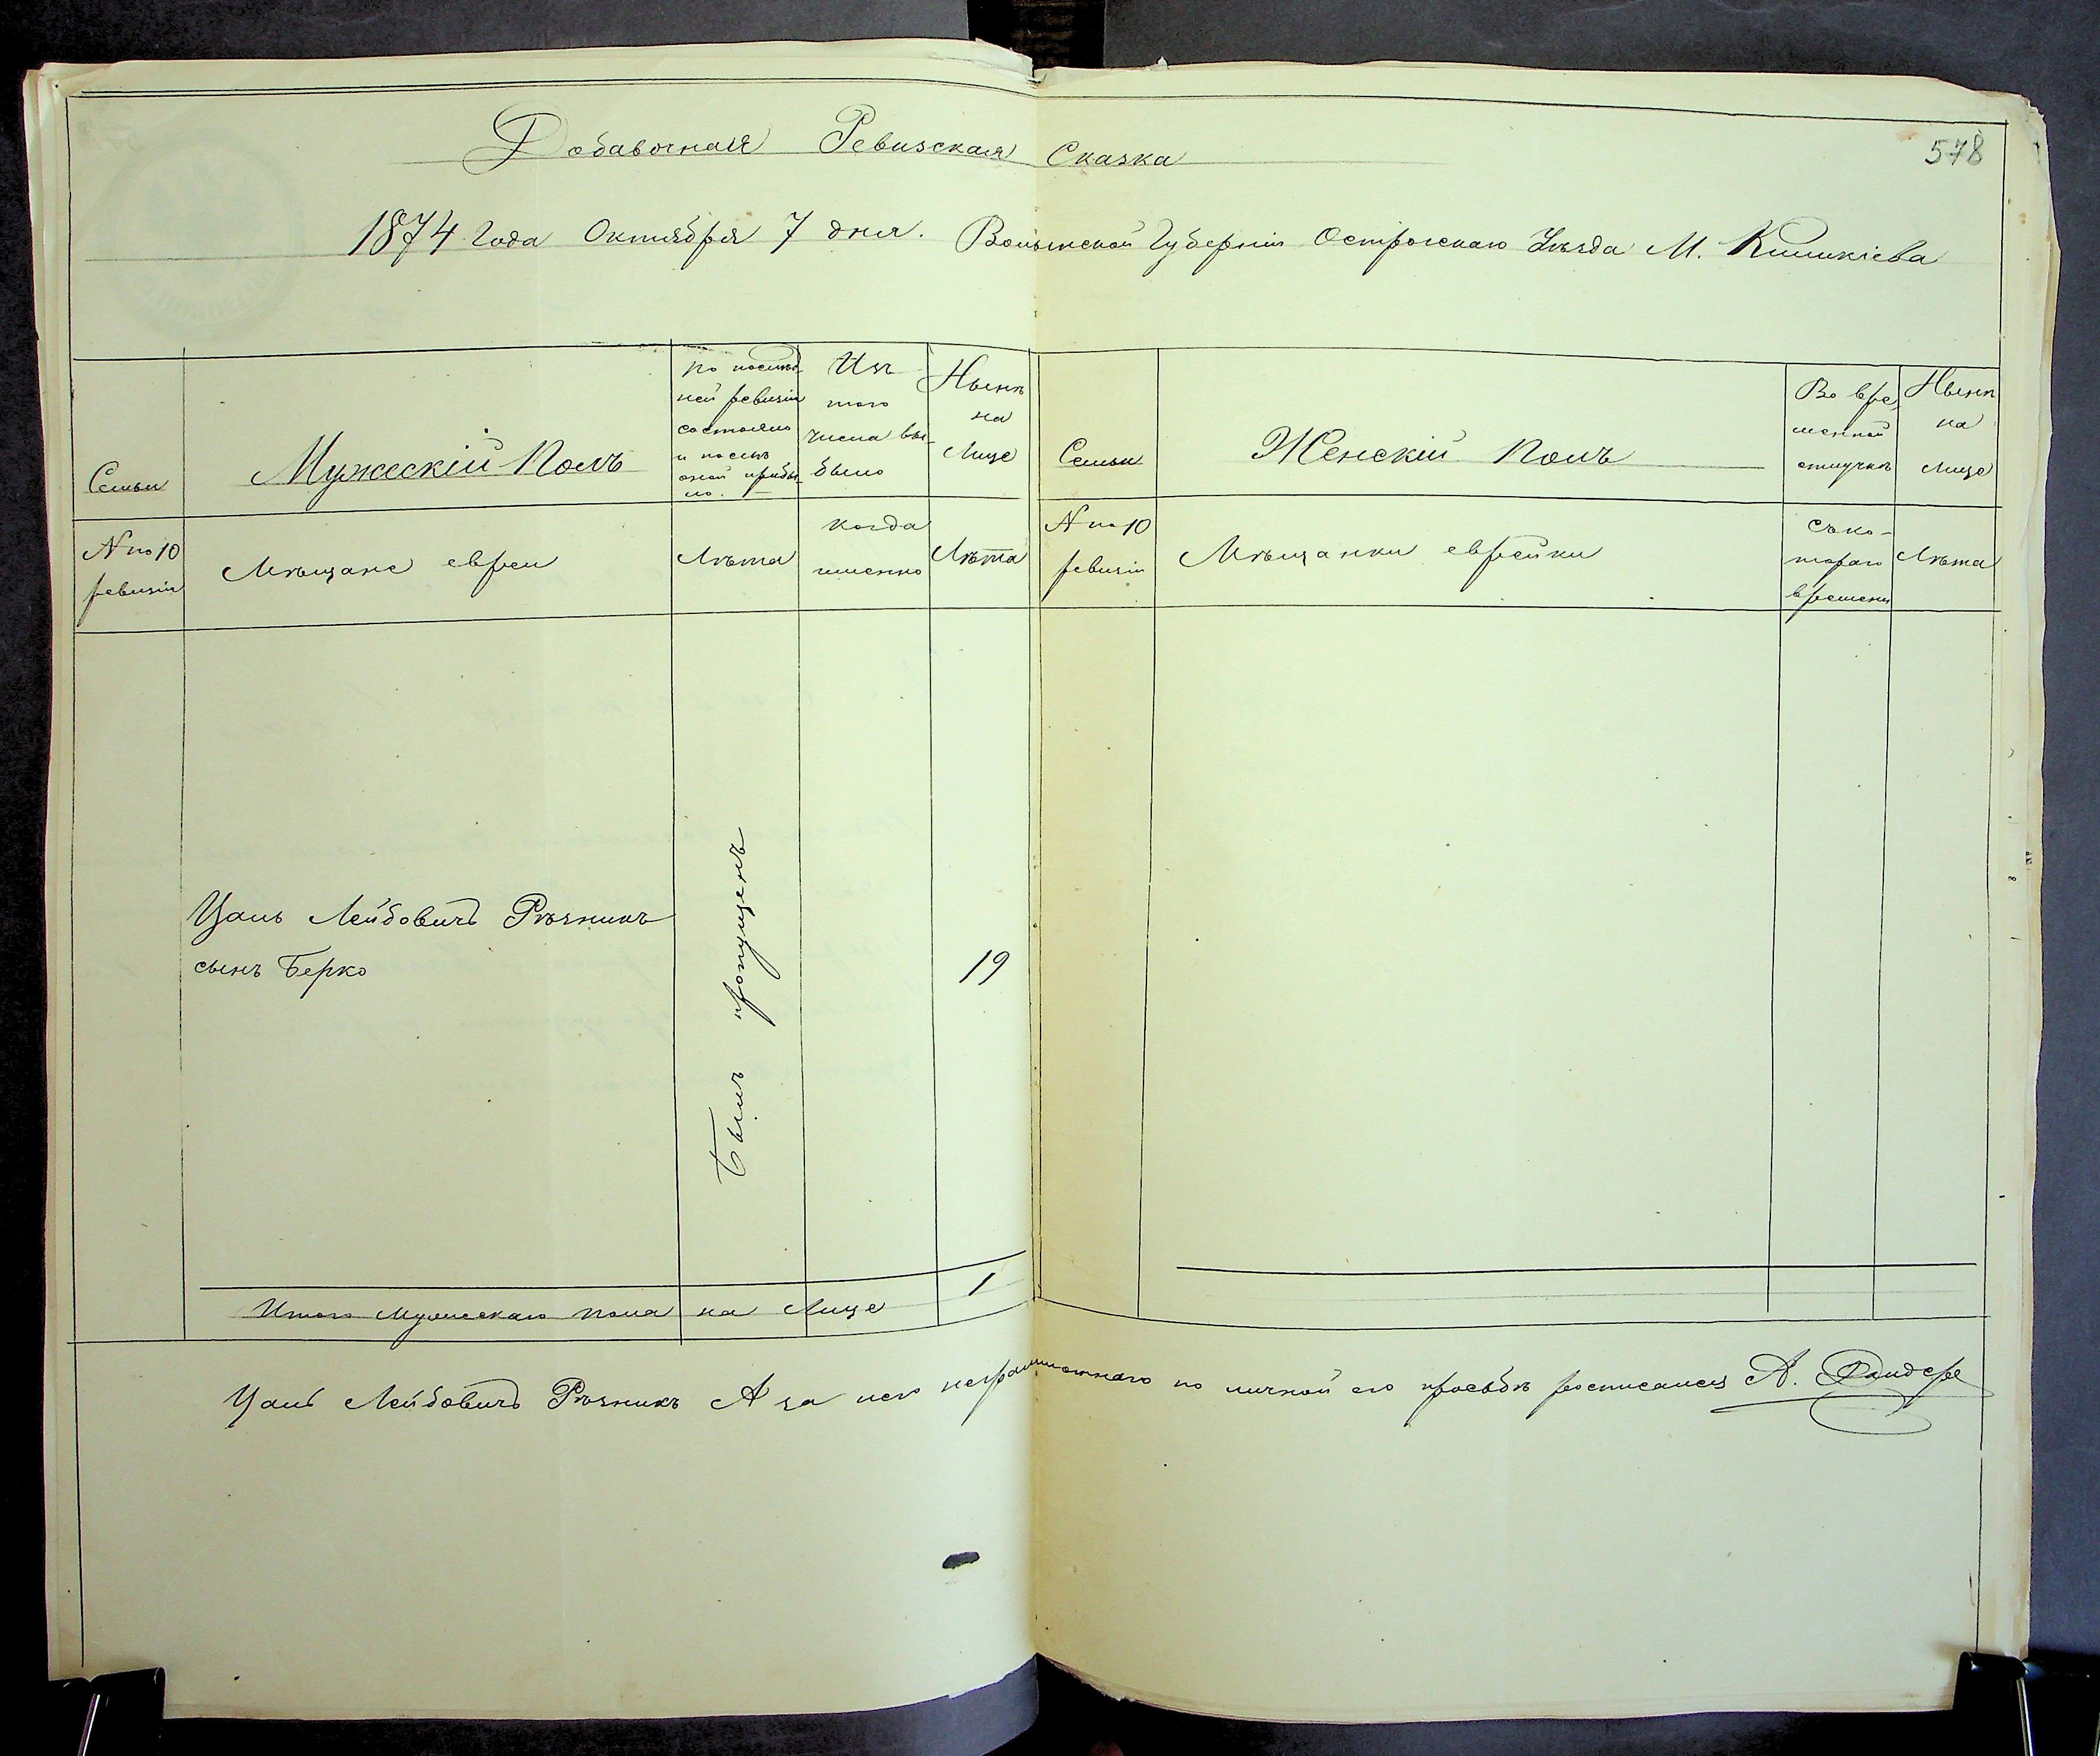 Добавочная Ревизская Сказка
578
1874 года Октября 7 дня. Волынской Губерніи Острожскаго Уѣзда М. Киликіева
Семьи
Мужескій Полъ
По послѣд-
ней ревизіи
состояло
и послѣ
оной прибы-
ло.
Изъ
того
числа вы-
было
Нынѣ
на
Лице
Семьи
Женскій Полъ
Во вре-
менной
отлучкѣ
Нынѣ
на
Лице
№ по 10
ревизіи
Мѣщане евреи
Лѣта
когда
именно
Лѣта
№ по 10
ревизіи
Мѣщанки еврейки
Съ ко-
тораго
времени
Лѣта
Цаль Лейбовичъ Рѣзникъ
сынъ Берко
Былъ пропущенъ
19
Итого Мужескаго пола на Лице
1
Цаль Лейбовичъ Рѣзникъ А за него неграмотнаго по личной его просьбѣ росписался А.